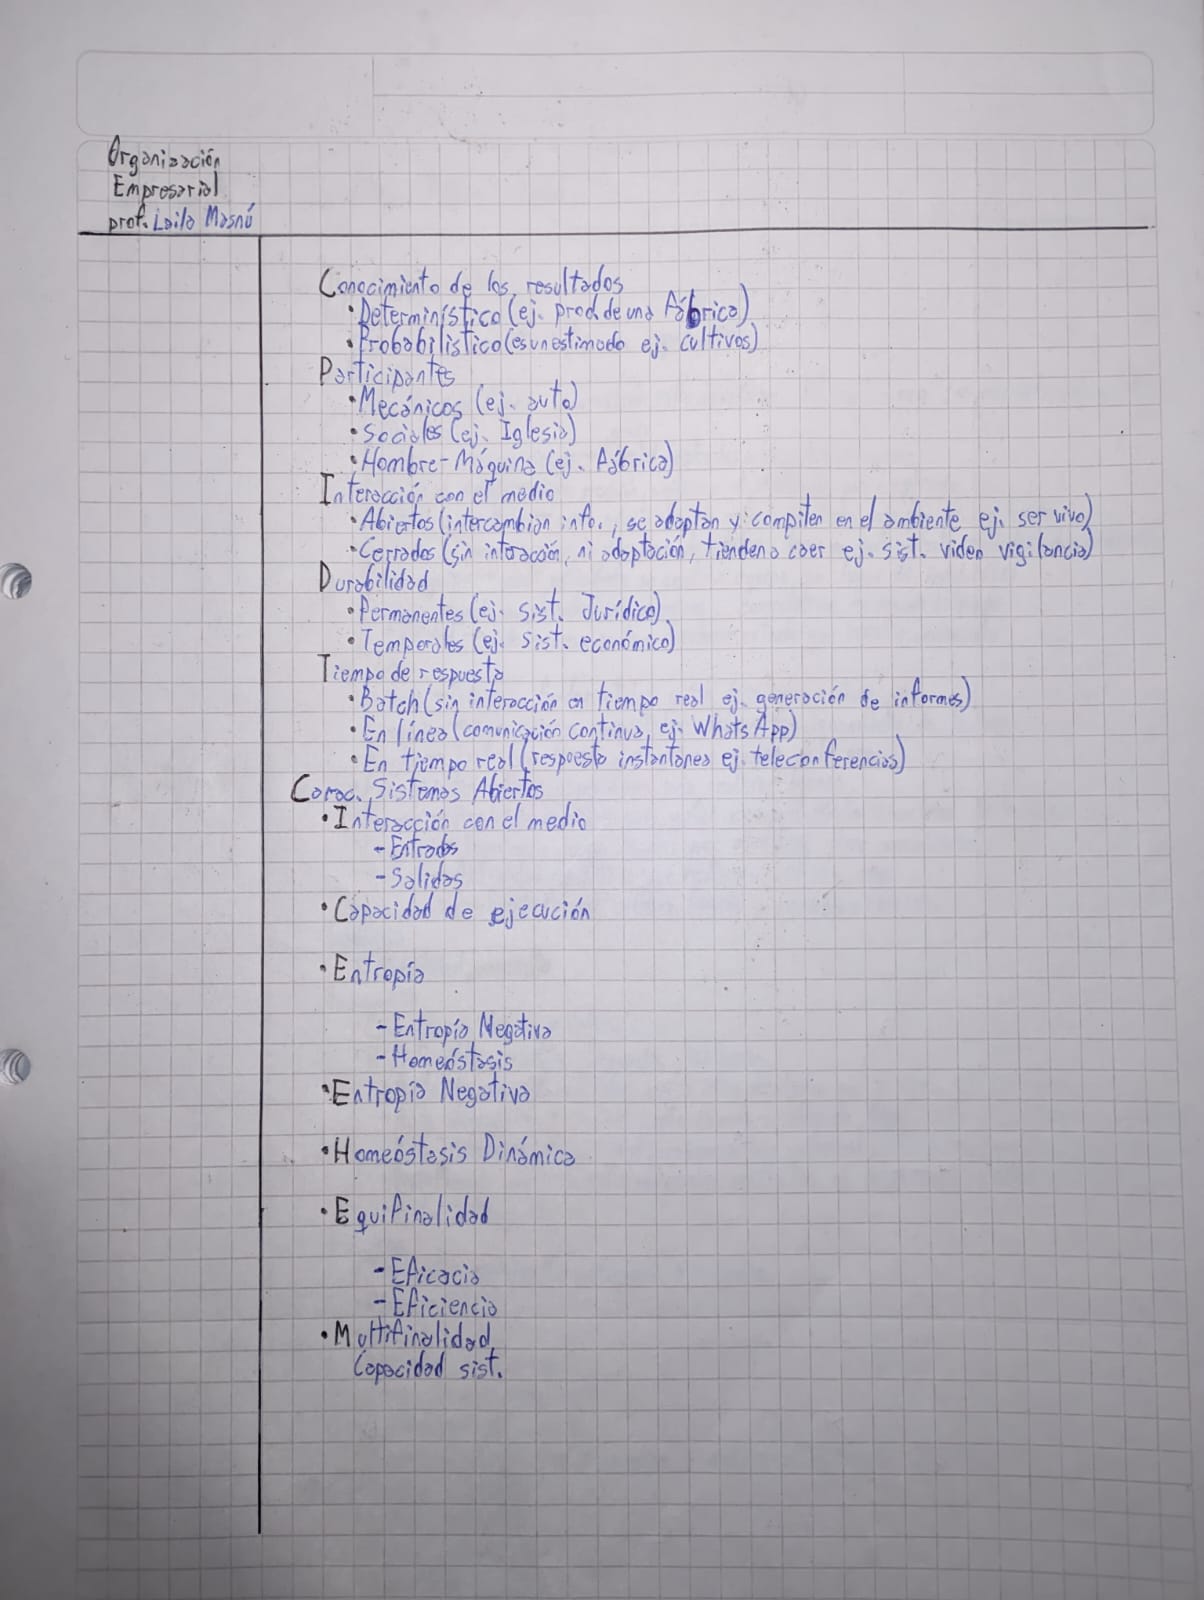 Organización
Empresarial
prof. Laila Masnú
Conocimiento de los resultados
• Determinístico (ej. prod. de una fábrica)
• Probabilístico (es un estimado ej. cultivos)
Participantes
• Mecánicos (ej. auto)
• Sociales (ej. Iglesia)
• Hombre-Máquina (ej. Fábrica)
Interacción con el medio
• Abiertos (intercambian info., se adaptan y compiten en el ambiente ej. ser vivo)
• Cerrados (sin interacción, ni adaptación, tienden a caer ej. sist. video vigilancia)
Durabilidad
• Permanentes (ej. sist. Jurídico)
• Temporales (ej. sist. económico)
Tiempo de respuesta
• Batch (sin interacción en tiempo real ej. generación de informes)
• En línea (comunicación continua, ej. WhatsApp)
• En tiempo real (respuesta instantanea ej. teleconferencias)
Carac. Sistemas Abiertos
• Interacción con el medio
- Entradas
- Salidas
• Capacidad de ejecución
• Entropía
- Entropía Negativa
- Homeóstasis
• Entropía Negativa
• Homeóstasis Dinámica
• Equifinalidad
- Eficacia
- Eficiencia
• Multifinalidad
Capacidad sist.